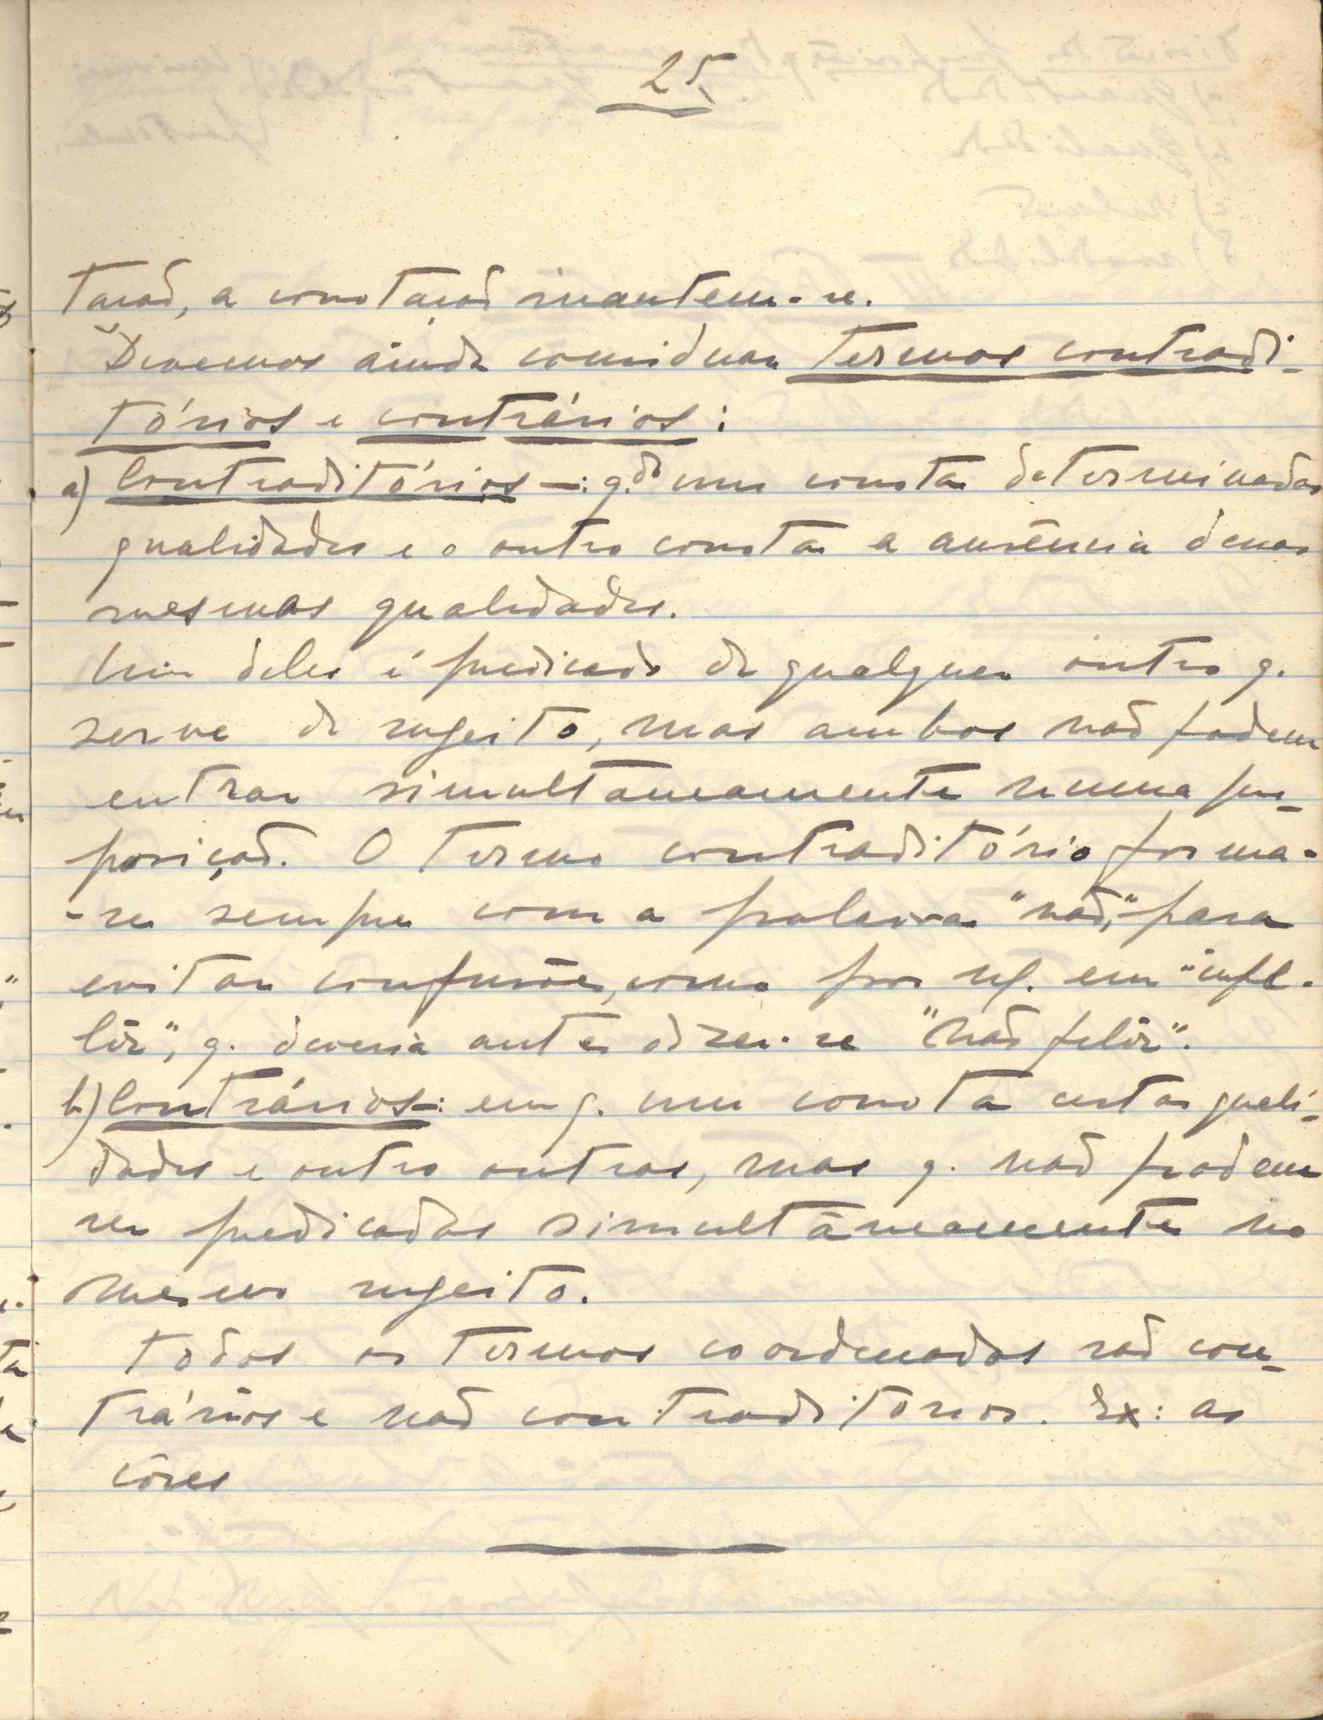 25
tação, a conotação mantem-se.
Devemos ainda considerar termos contradi-
tórios e contrários:
a) Contraditórios -: q.do um conota determinadas
qualidades e o outro conota a ausência dessas
mesmas qualidades.
Um deles é predicado de qualquer outro q.
serve de sugeito, mas ambos não podem
entrar simultâneamente numa pro-
posição. O termo contraditório forma-
-se sempre com a palavra "não", para
evitar confusões, como por ex. em "infe-
liz", q. deveria antes dizer-se "não feliz".
b) Contrários-: em q. um conota certas quali-
dades e outro outras, mas q. não podem
ser predicados simultâneamente no
mesmo sugeito.
Todos os termos coordenados são con-
trários e não contraditórios. Ex: as
côres